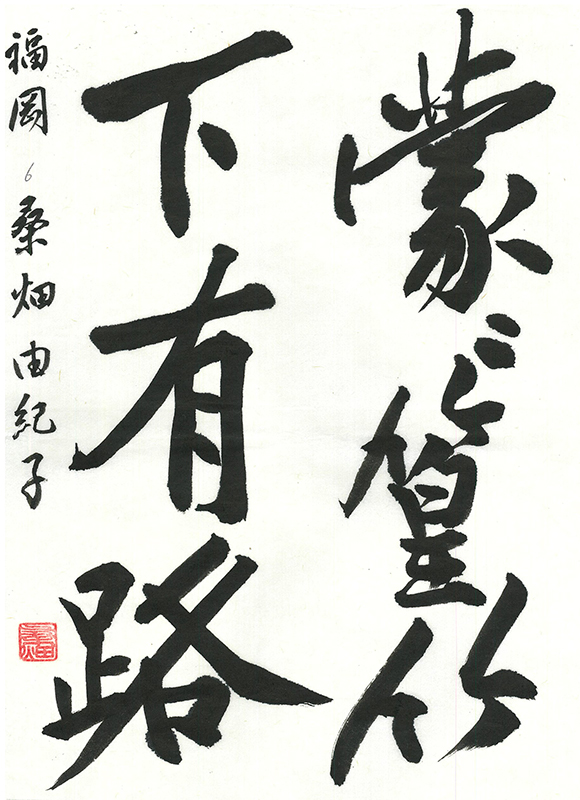 蒙〻篁竹
下有路
福岡 6 桑畑由紀子